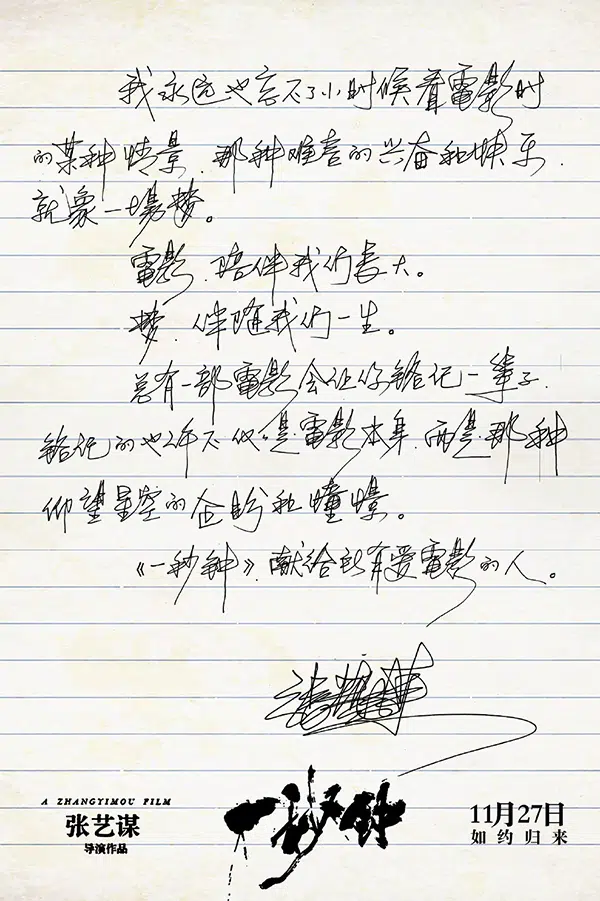 我永远也忘不了小时候看電影时
的某种情景.那种难言的兴奋和快乐.
就象一場梦。
電影.陪伴我们长大。
梦.伴随我们一生。
总有一部電影会让你铭记一辈子.
铭记的也许不仅是電影本身.而是那种
仰望星空的企盼和憧憬。
《一秒钟》.献给所有爱電影的人。
A ZHANGYIMOU FILM
张艺谋
导演作品
一秒钟
11月27日
如约归来